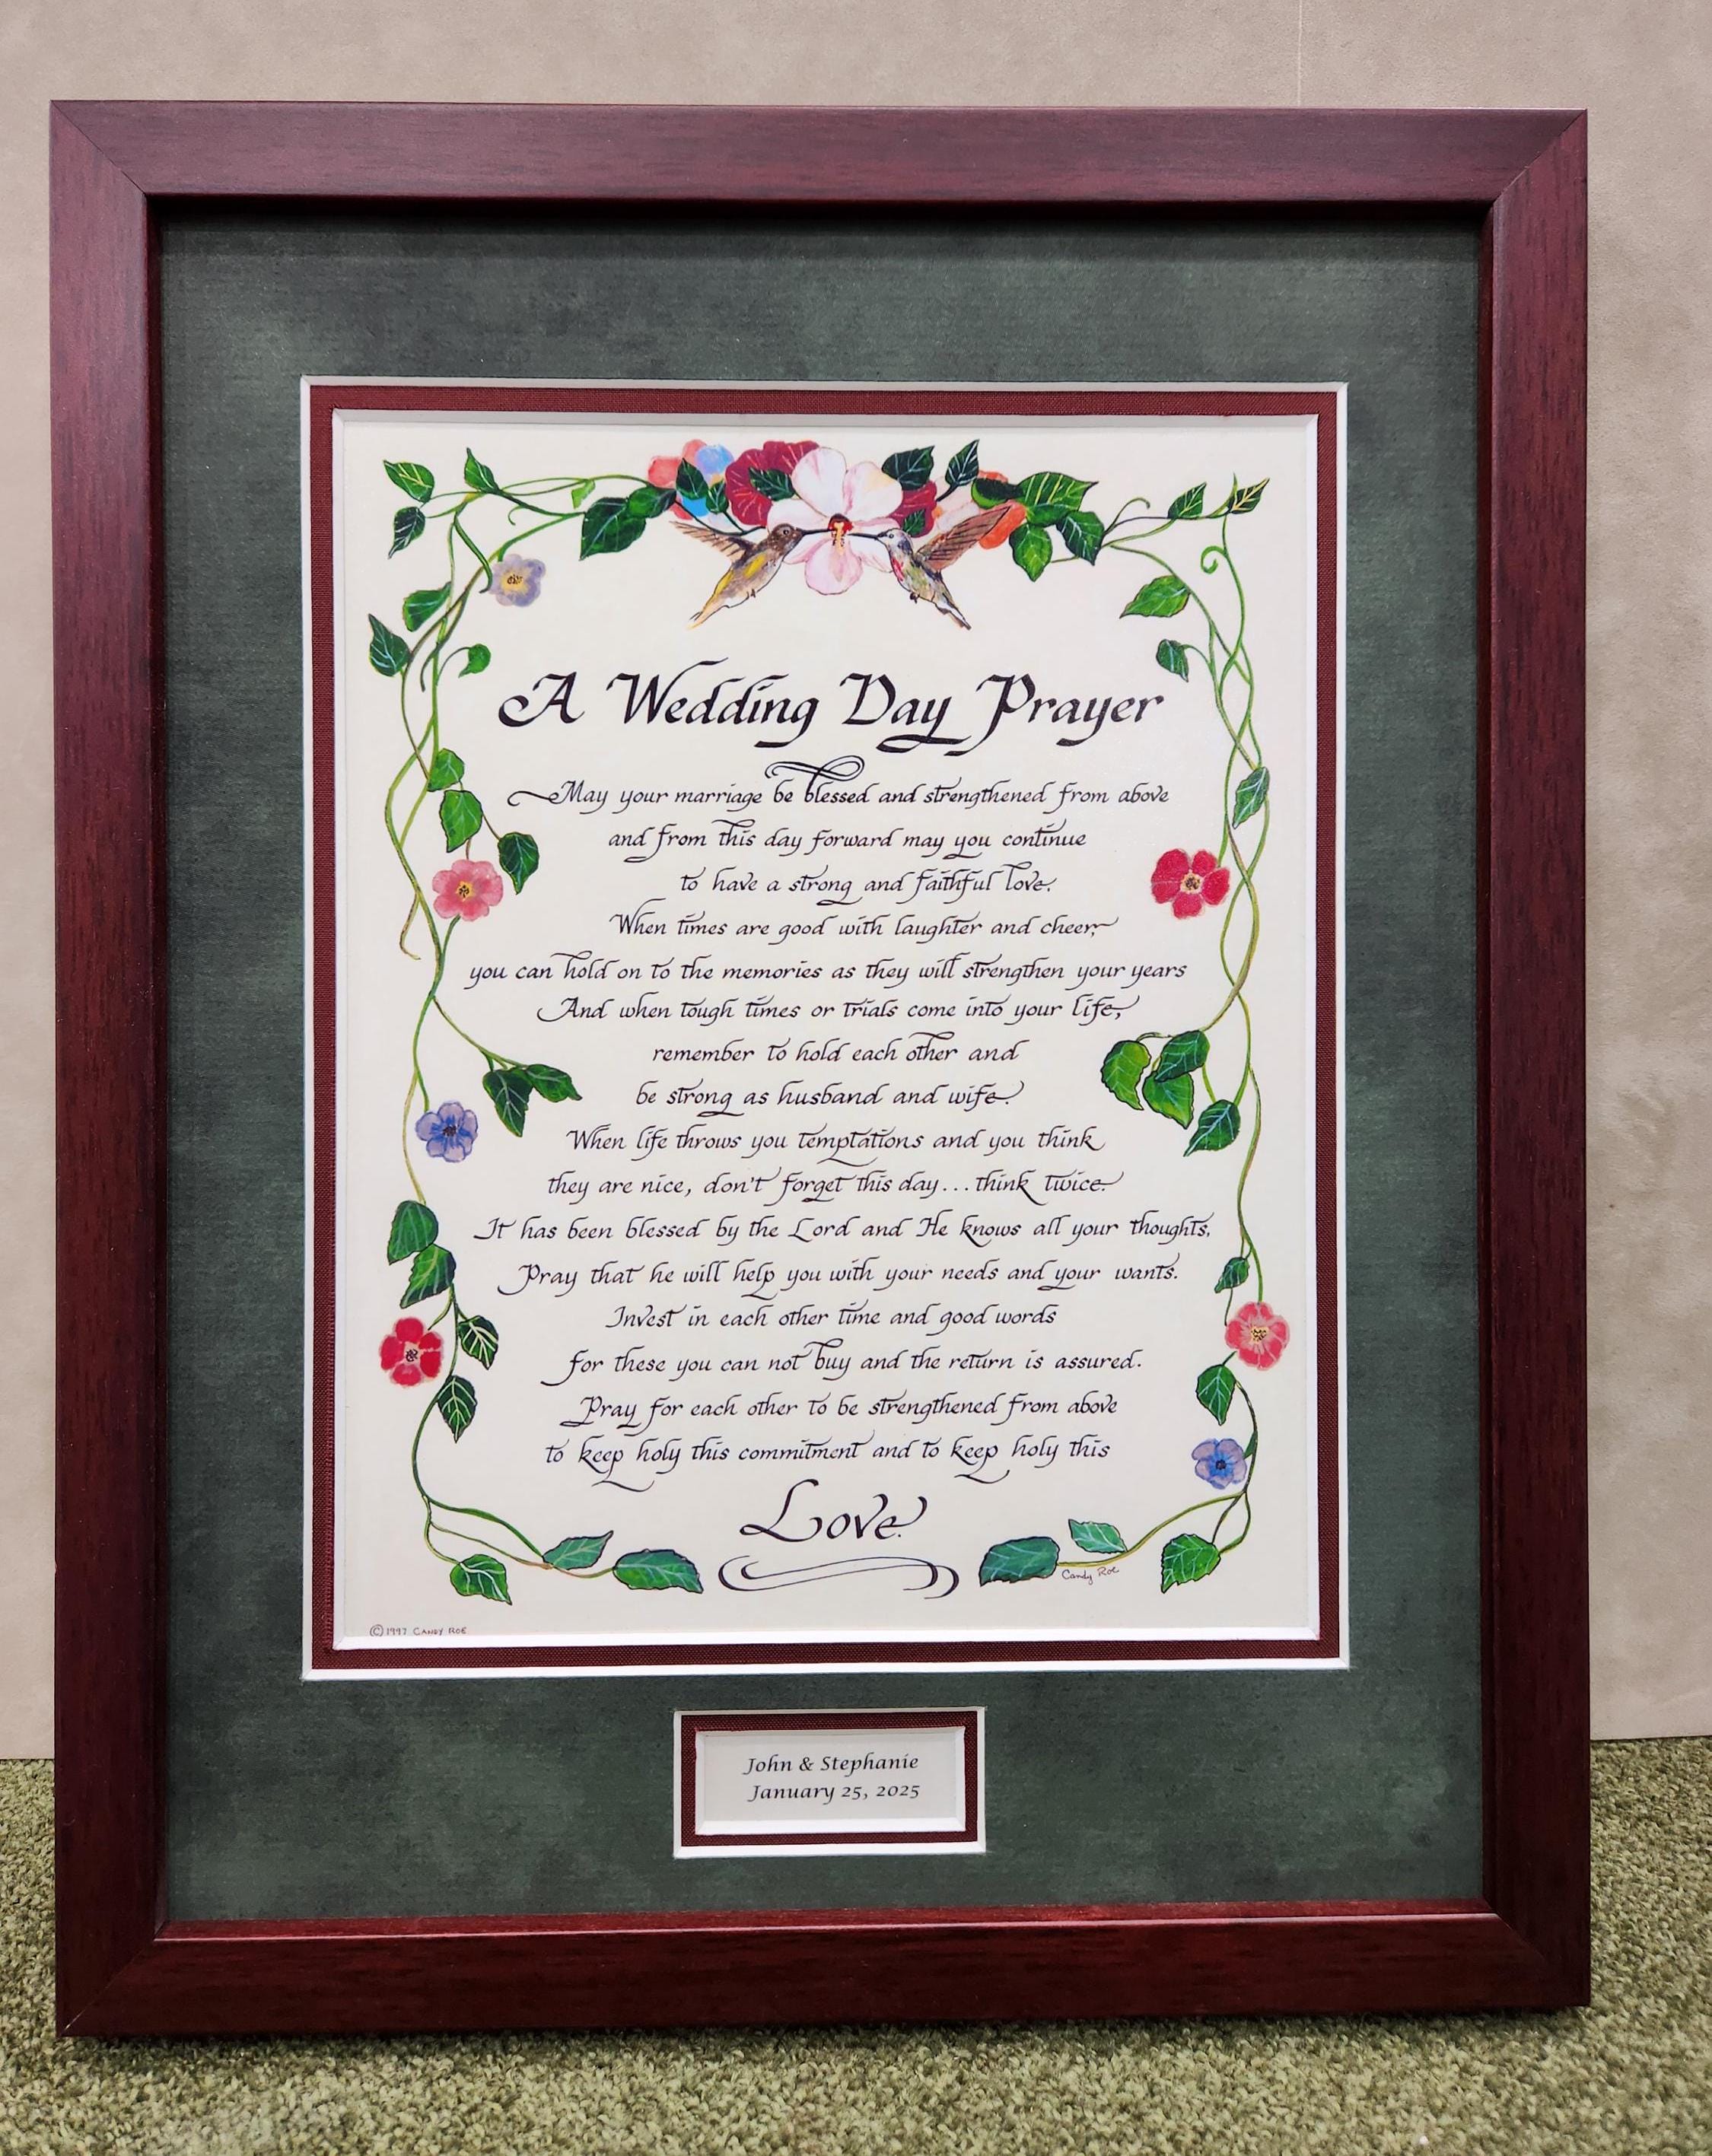 A Wedding Day Prayer
May your marriage be blessed and strengthened from above
and from this day forward may you continue
to have a strong and faithful love.
When times are good with laughter and cheer,
you can hold on to the memories as they will strengthen your years
And when tough times or trials come into your life,
remember to hold each other and
be strong as husband and wife.
When life throws you temptations and you think
they are nice, don't forget this day...think twice.
It has been blessed by the Lord and He knows all your thoughts,
Pray that he will help you with your needs and your wants.
Invest in each other time and good words
for these you can not buy and the return is assured.
Pray for each other to be strengthened from above
to keep holy this commitment and to keep holy this
Love.
Candy Roe
© 1997 CANDY ROE
John & Stephanie
January 25, 2025